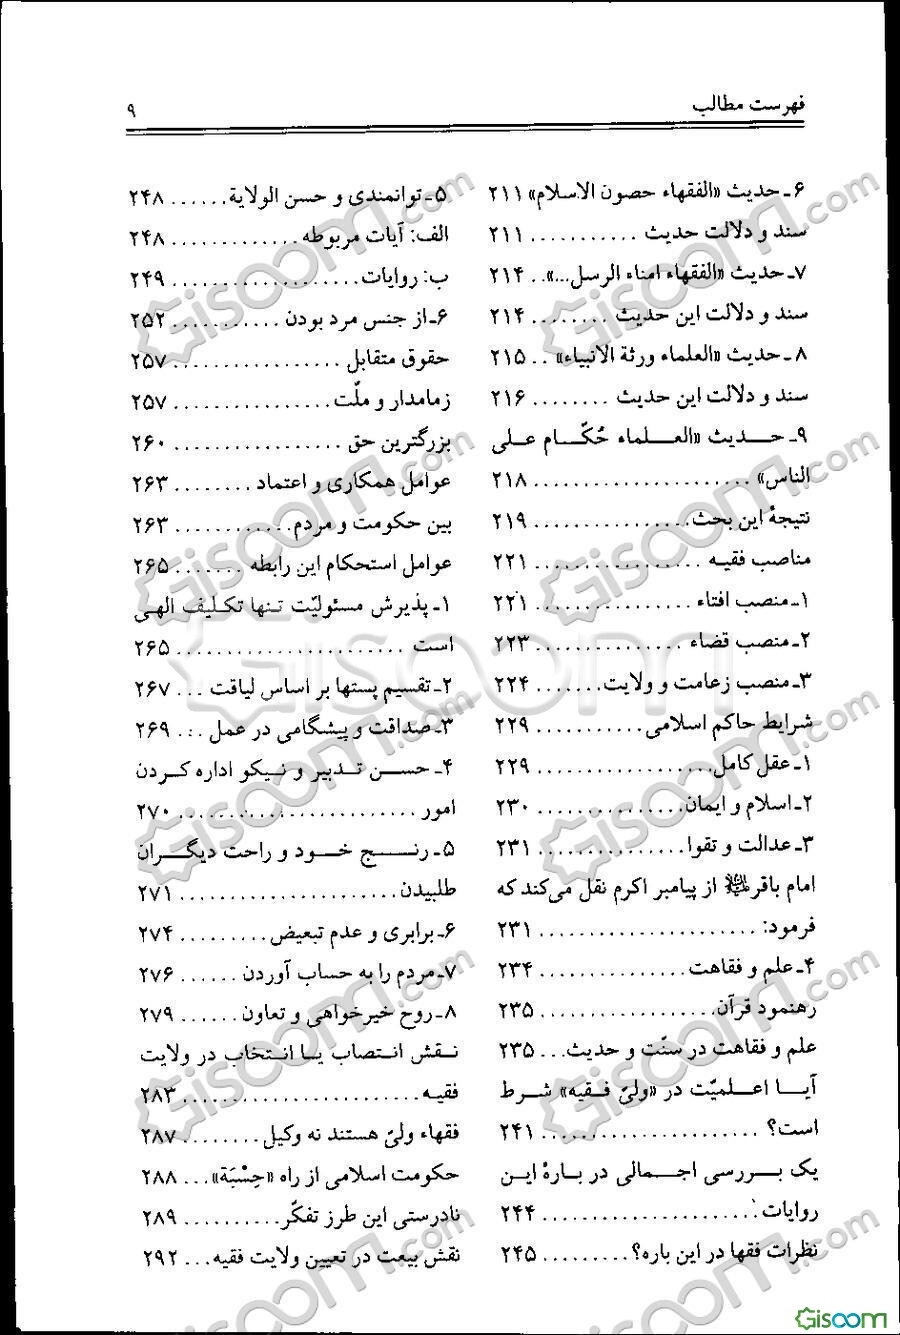 فهرست مطالب ۹
۶ـ حدیث «الفقهاء حصون الاسلام» ۲۱۱
سند و دلالت حدیث ........... ۲۱۱
۷ـ حدیث «الفقهاء امناء الرسل...».. ۲۱۴
سند و دلالت این حدیث ........ ۲۱۴
۸ـ حدیث «العلماء ورثة الانبیاء» .. ۲۱۵
سند و دلالت این حدیث ........ ۲۱۶
۹ـ حدیث «العلماء حُکّام علی
الناس» ...................... ۲۱۸
نتیجهٔ این بحث................ ۲۱۹
مناصب فقیه ................. ۲۲۱
۱ـ منصب افتاء ................ ۲۲۱
۲ـ منصب قضاء ............... ۲۲۳
۳ـ منصب زعامت و ولایت....... ۲۲۴
شرایط حاکم اسلامی........... ۲۲۹
۱ـ عقل کامل.................. ۲۲۹
۲ـ اسلام و ایمان............... ۲۳۰
۳ـ عدالت و تقوا............... ۲۳۱
امام باقر از پیامبر اکرم نقل می‌کند که
فرمود: ...................... ۲۳۱
۴ـ علم و فقاهت ............... ۲۳۴
رهنمود قرآن.................. ۲۳۵
علم و فقاهت در سنّت و حدیث... ۲۳۵
آیا اعلمیّت در «ولیّ فقیه» شرط
است؟ ...................... ۲۴۱
یک بررسی اجمالی در بارهٔ این
روایات ...................... ۲۴۴
نظرات فقها در این باره؟......... ۲۴۵
۵ـ توانمندی و حسن الولایة...... ۲۴۸
الف: آیات مربوطه............. ۲۴۸
ب: روایات................... ۲۴۹
۶ـ از جنس مرد بودن ........... ۲۵۲
حقوق متقابل ................. ۲۵۷
زمامدار و ملّت................ ۲۵۷
بزرگترین حق ................. ۲۶۰
عوامل همکاری و اعتماد ........ ۲۶۳
بین حکومت و مردم............ ۲۶۳
عوامل استحکام این رابطه ....... ۲۶۵
۱ـ پذیرش مسئولیّت تنها تکلیف الهی
است ....................... ۲۶۵
۲ـ تقسیم پستها بر اساس لیاقت ... ۲۶۷
۳ـ صداقت و پیشگامی در عمل ... ۲۶۹
۴ـ حسن تدبیر و نیکو اداره کردن
امور........................ ۲۷۰
۵ـ رنج خود و راحت دیگران
طلبیدن...................... ۲۷۱
۶ـ برابری و عدم تبعیض......... ۲۷۴
۷ـ مردم را به حساب آوردن ...... ۲۷۶
۸ـ روح خیرخواهی و تعاون ...... ۲۷۹
نقش انتصاب یا انتخاب در ولایت
فقیه........................ ۲۸۳
فقهاء ولیّ هستند نه وکیل........ ۲۸۷
حکومت اسلامی از راه «حِسْبَة»... ۲۸۸
نادرستی این طرز تفکّر.......... ۲۸۹
نقش بیعت در تعیین ولایت فقیه... ۲۹۲
Gisoom
Gisoom.com